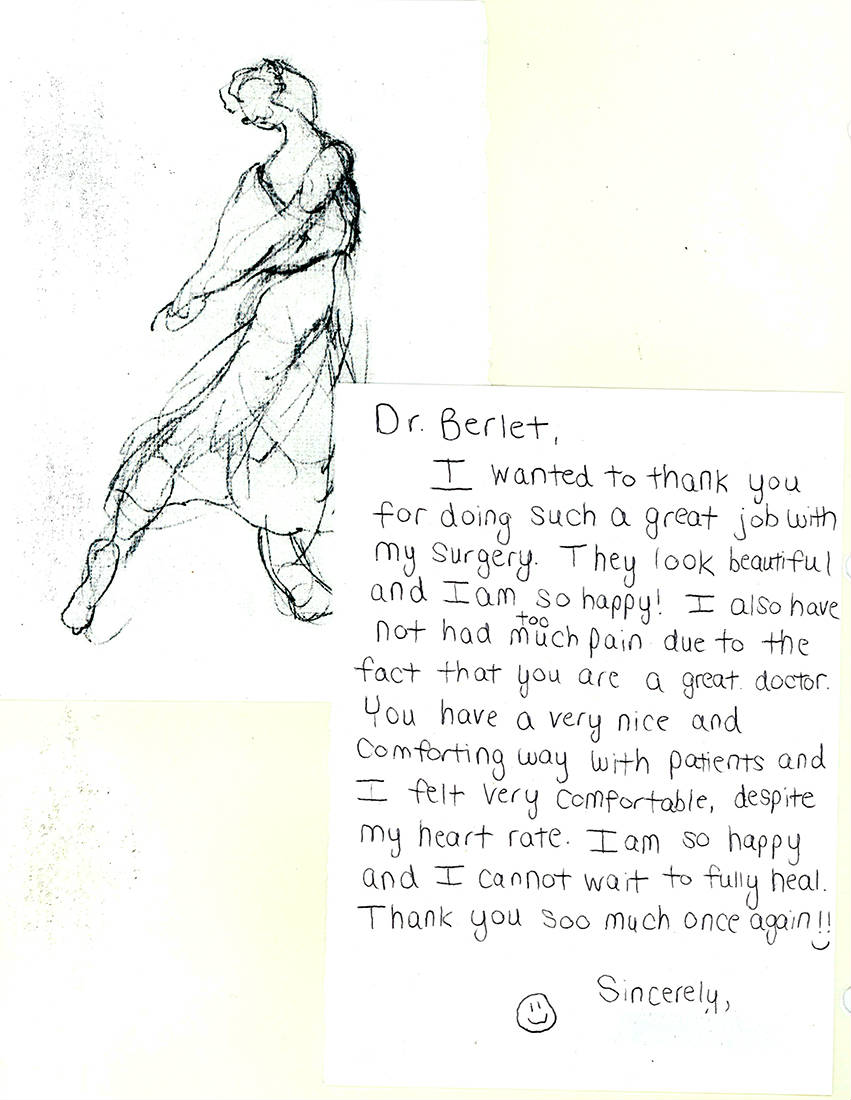 Dr. Berlet,
I wanted to thank you
for doing such a great job with
my surgery. They look beautiful
and I am so happy! I also have
not had too much pain due to the
fact that you are a great doctor.
You have a very nice and
comforting way with patients and
I felt very comfortable, despite
my heart rate. I am so happy
and I cannot wait to fully heal.
Thank you soo much once again!!
Sincerely,